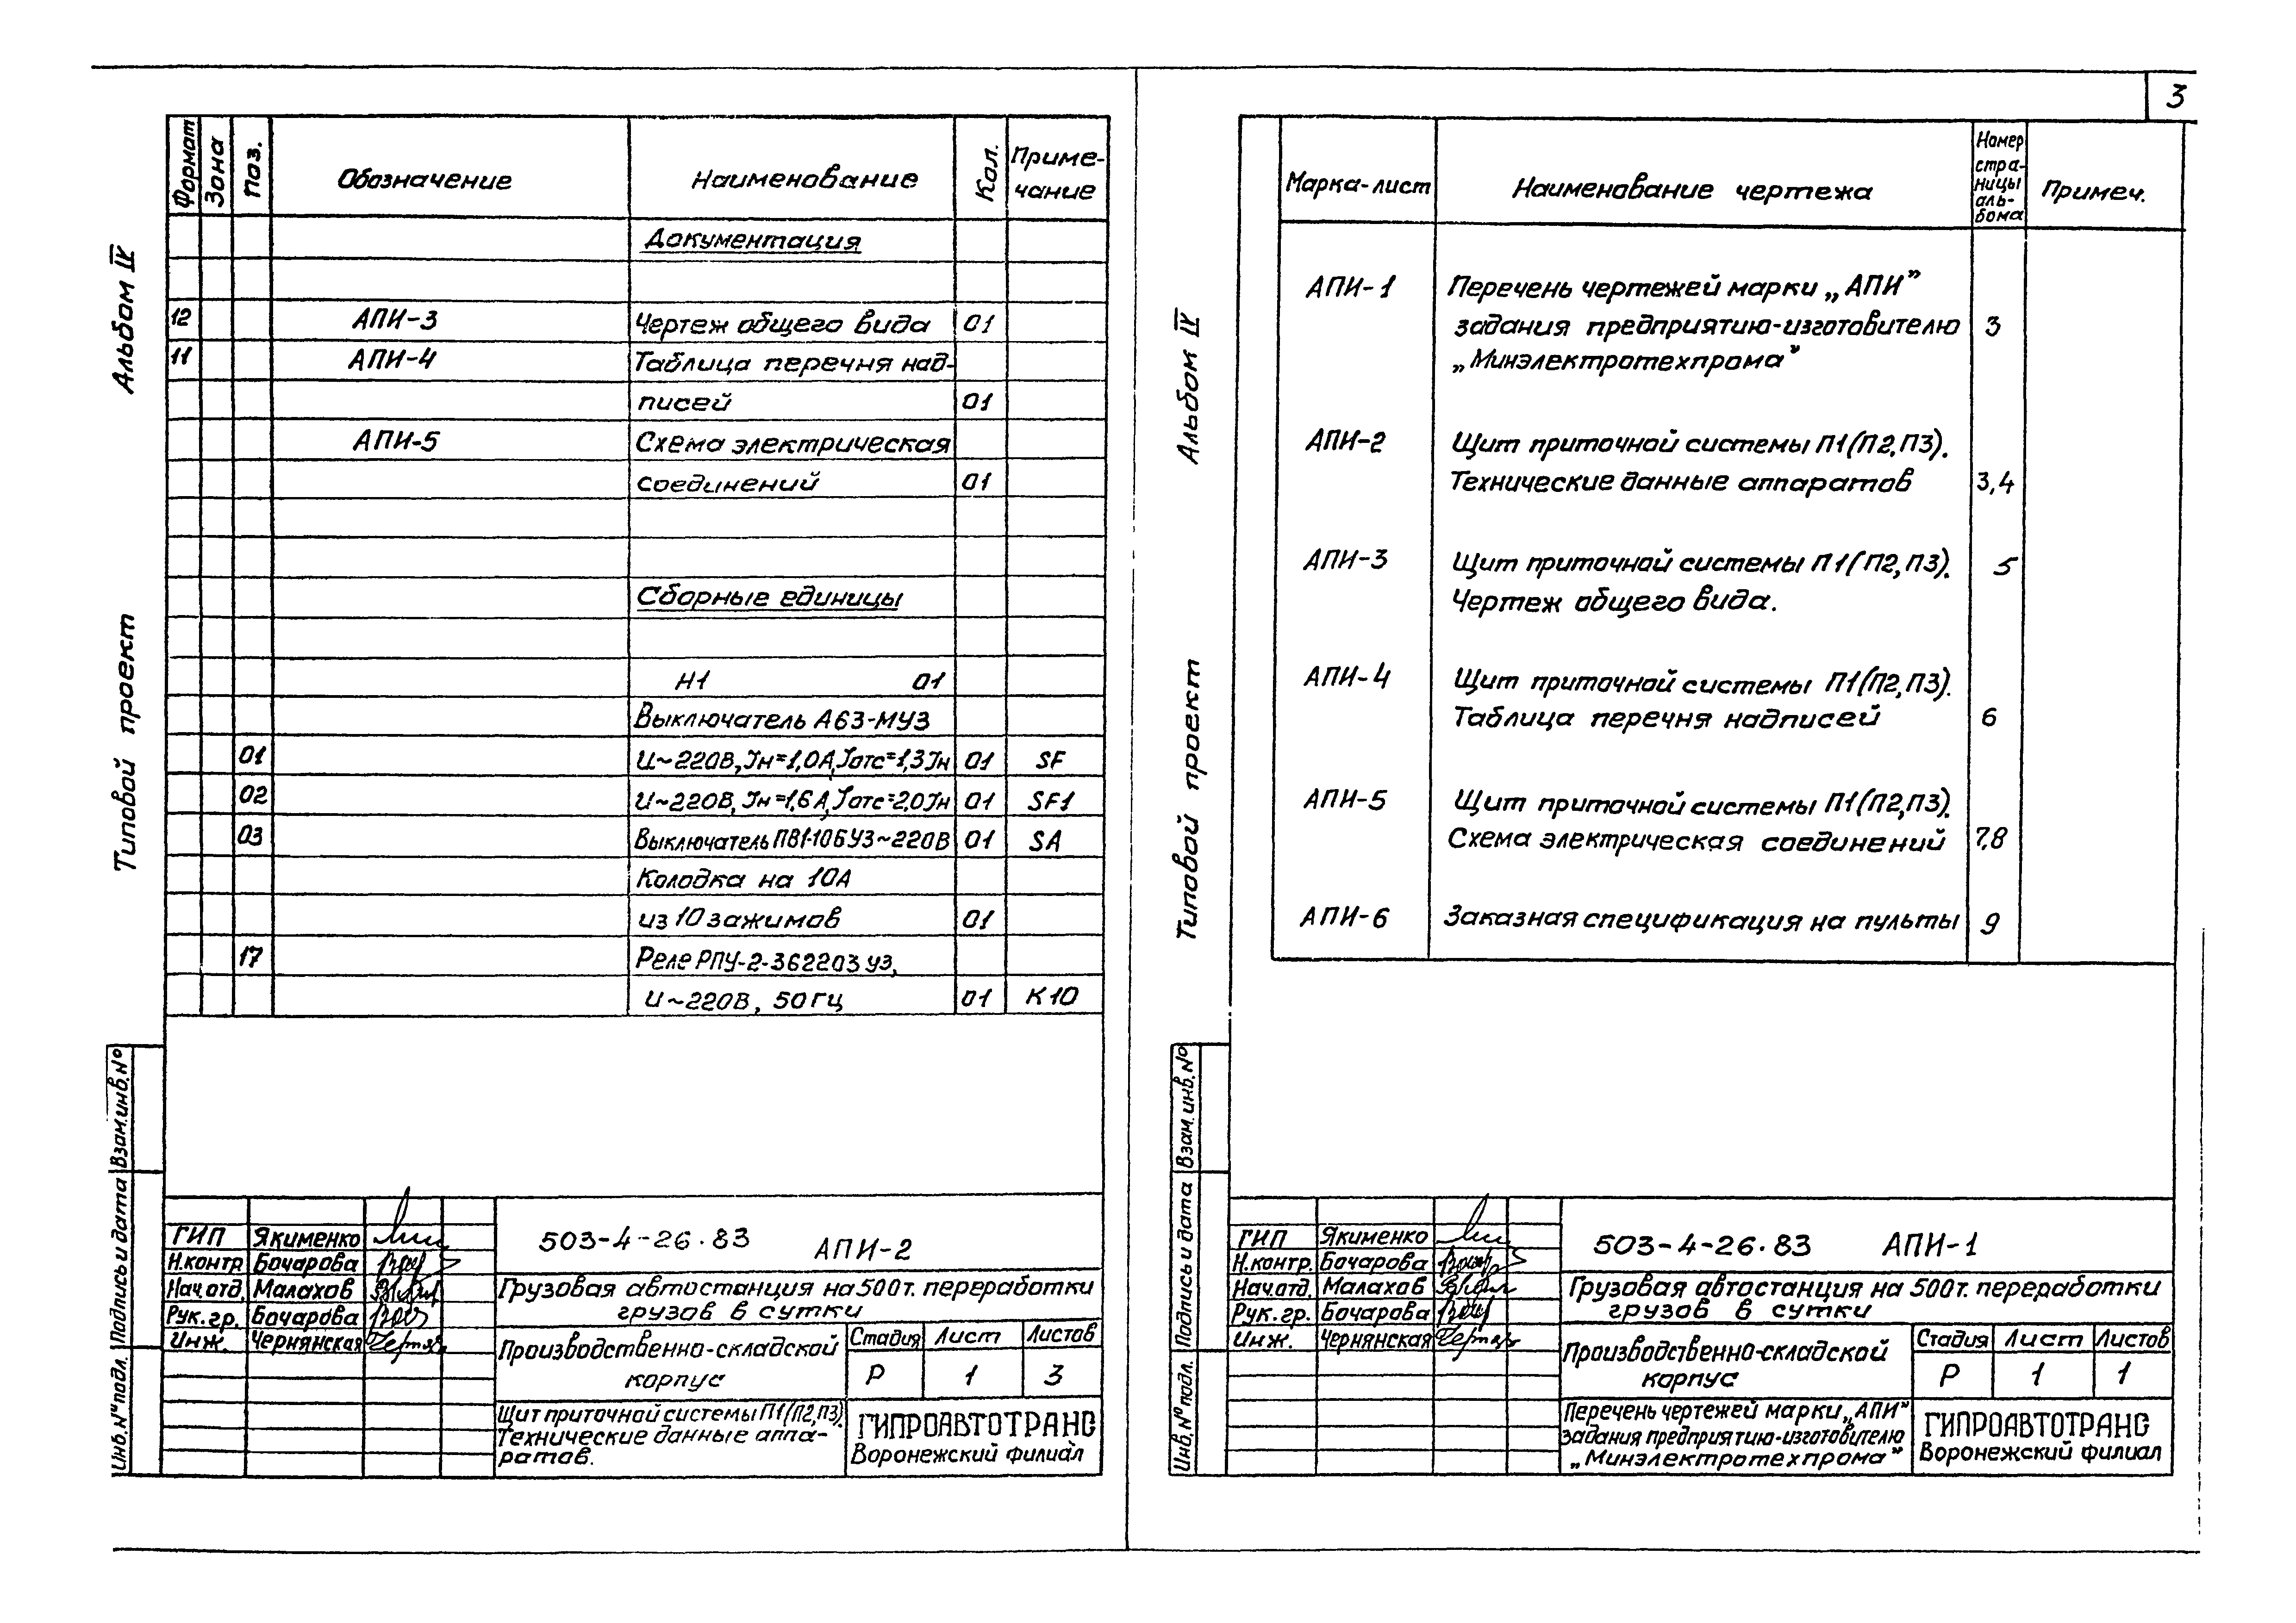 3
Альбом IV
Типовой проект
Формат Зона Поз. Обозначение Наименование Кол. Приме-
чание
Документация
12 АПИ-3 Чертеж общего вида 01
11 АПИ-4 Таблица перечня над-
писей 01
АПИ-5 Схема электрическая
соединений 01
Сборные единицы
Н1 01
Выключатель А63-МУ3
01 U~220В, Iн=1,0А, Iотс=1,3Iн 01 SF
02 U~220В, Iн=1,6А, Iотс=2,0Iн 01 SF1
03 Выключатель ПВ1-10Б У3~220В 01 SA
Колодка на 10А
из 10 зажимов 01
17 Реле РПУ-2-362203 У3,
U~220В, 50Гц 01 К10
Инв.№подл. Подпись и дата Взам.инв.№
ГИП Якименко
Н.контр Бочарова
Нач.отд. Малахов
Рук.гр. Бочарова
Инж. Чернянская
503-4-26.83 АПИ-2
Грузовая автостанция на 500т. переработки
грузов в сутки
Производственно-складской
корпус
Стадия Лист Листов
Р 1 3
Щит приточной системы П1(П2,П3).
Технические данные аппа-
ратов.
ГИПРОАВТОТРАНС
Воронежский филиал
Альбом IV
Типовой проект
Марка-лист Наименование чертежа Номер
стра-
ницы
аль-
бома Примеч.
АПИ-1 Перечень чертежей марки „АПИ”
задания предприятию-изготовителю 3
„Минэлектротехпрома”
АПИ-2 Щит приточной системы П1(П2,П3).
Технические данные аппаратов 3,4
АПИ-3 Щит приточной системы П1(П2,П3). 5
Чертеж общего вида.
АПИ-4 Щит приточной системы П1(П2,П3).
Таблица перечня надписей 6
АПИ-5 Щит приточной системы П1(П2,П3).
Схема электрическая соединений 7,8
АПИ-6 Заказная спецификация на пульты 9
Инв.№подл. Подпись и дата Взам.инв.№
ГИП Якименко
Н.контр. Бочарова
Нач.отд. Малахов
Рук.гр. Бочарова
Инж. Чернянская
503-4-26.83 АПИ-1
Грузовая автостанция на 500т. переработки
грузов в сутки
Производственно-складской
корпус
Стадия Лист Листов
Р 1 1
Перечень чертежей марки „АПИ”
задания предприятию-изготовителю
„Минэлектротехпрома”
ГИПРОАВТОТРАНС
Воронежский филиал